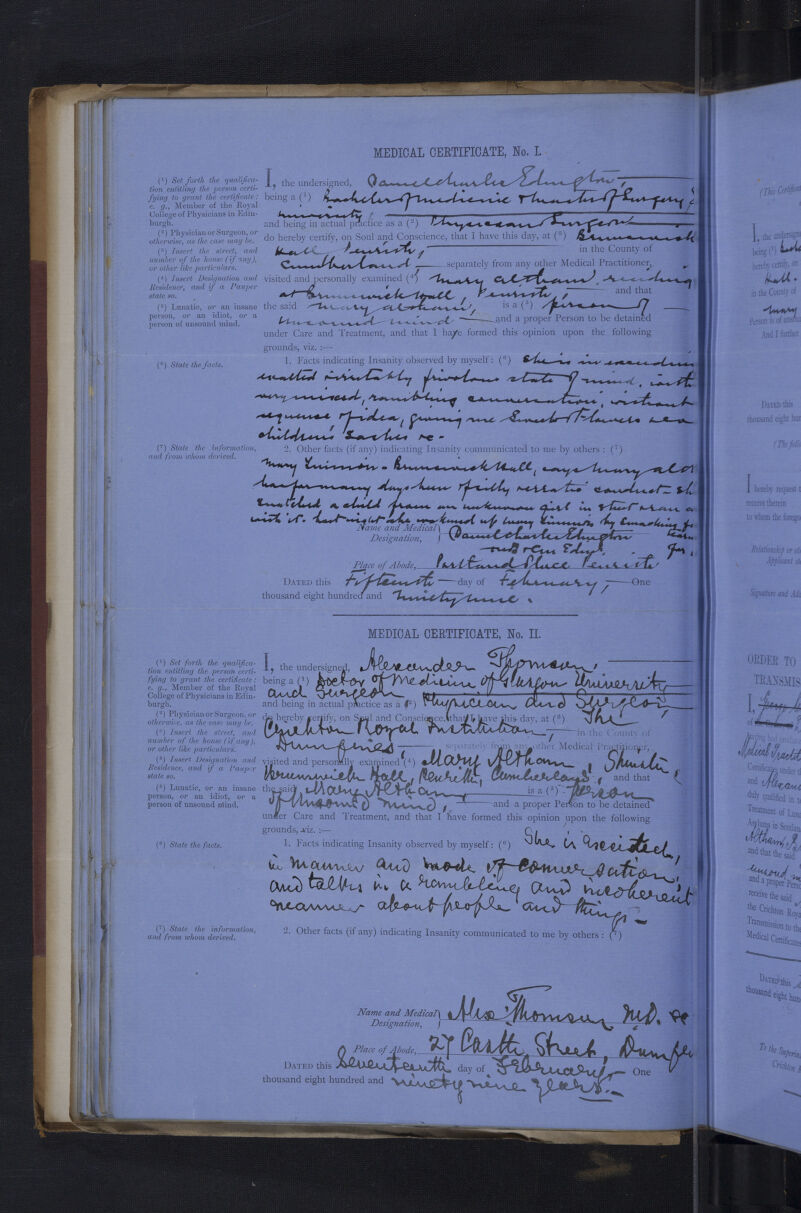 MEDICAL CERTIFICATE, No. I.
(1) Set forth the qualifica-
tion entitling the person certi-
fying to grant the certificate:
e. g., Member of the Royal
College of Physicians in Edin-
burgh.
(2) Physician or Surgeon, or
otherwise, as the case may be.
(3) Insert the street, and
number of the house (if any),
or other like particulars.
(4) Insert Designation and
Residence, and if a Pauper
state so.
(5) Lunatic, or an insane
person, or an idiot, or a
person of unsound mind.
I, the undersigned, Daniel Charles Edington,
being a (1) Bachelor of Medicine & Master of Surgery
University
and being in actual practice as a (2) Physician & Surgeon
do hereby certify, on Soul and Conscience, that I have this day, at (3) Brunswick
Hall, Penrith, in the County of
Cumberland, separately from any other Medical Practitioner,
visited and personally examined (4) Mary Altham, residing
at Brunswick Hall, Penrith, and that
the said Mary Altham, is a (5) person of
unsound mind and a proper Person to be detained
under Care and Treatment, and that I have formed this opinion upon the following
grounds, viz. :—
(6) State the facts.
1. Facts indicating Insanity observed by myself: (6) She is in
exalted irritably frivolous state of mind, with
very mixed, rambling conversation, without
sequence of idea, giving me Sweets & flowers
children's Sashes &c -
(7) State the information,
and from whom derived.
2. Other facts (if any) indicating Insanity communicated to me by others: (7)
Mary Kinmon - Brunswick Hall, says Mary Alt
has for many days been erratic conduct - Sh
snatched a child from an unknown girl in street & ran a
with it. Last night she wakened up Mary Kinmon by smacking
Name and Medical
Designation, Daniel Charles Edington
MB & CM Edin.
Place of Abode, Portland Place Penrith
DATED this Fifteenth day of February, One
thousand eight hundred and ninety nine.
MEDICAL CERTIFICATE, No. II.
(1) Set forth the qualifica-
tion entitling the person certi-
fying to grant the certificate:
e. g., Member of the Royal
College of Physicians in Edin-
burgh.
(2) Physician or Surgeon, or
otherwise, as the case may be.
(3) Insert the street, and
number of the house (if any),
or other like particulars.
(4) Insert Designation and
Residence, and if a Pauper
state so.
(5) Lunatic, or an insane
person, or an idiot, or a
person of unsound mind.
I, the undersigned, Alexander Thomson,
being a (1) Doctor of Medicine of Glasgow University
and Surgeon
and being in actual practice as a (2) Physician and Surgeon,
do hereby certify, on Soul and Conscience, that I have this day, at (3) The
Crichton Royal Institution, in the County of
Dumfries, separately from any other Medical Practitioner,
visited and personally examined (4) Mary Altham, Spinster,
Brunswick Hall, Penrith, Cumberland, and that
the said Mary Altham, is a (5) Person
of Unsound mind, and a proper Person to be detained
under Care and Treatment, and that I have formed this opinion upon the following
grounds, viz. :—
(6) State the facts.
1. Facts indicating Insanity observed by myself: (6) She is excited,
in manner and mode of conversation,
and talks in a rambling and incoherent
manner about people and things -
(7) State the information,
and from whom derived.
2. Other facts (if any) indicating Insanity communicated to me by others: (7)
Name and Medical
Designation, Alex. Thomson M.D. &c
Place of Abode, 27 Castle Street, Dumfr
DATED this Seventeenth day of February, One
thousand eight hundred and ninety nine years. -
(This Certificat
I, the undersign
being (1)
hereby certify, on
Hall,
in the County of
Mary
Person is of unsou
And I further
DATED this
thousand eight hun
(The foll
I hereby request
receive therein
to whom the forego
Relationship or ot
Applicant sta
Signature and Ad
ORDER TO
TRANSMIS
I,
of
Medical Practit
Certificate under
and Alexan
duly qualified in
Treatment of Luna
Asylums in Scotla
Altham,
and that the said
unsound m
and a proper Pers
receive the said
the Crichton Roy
Transmission to the
Medical Certificate
DATED this
thousand eight hun
To the Superin
Crichton R